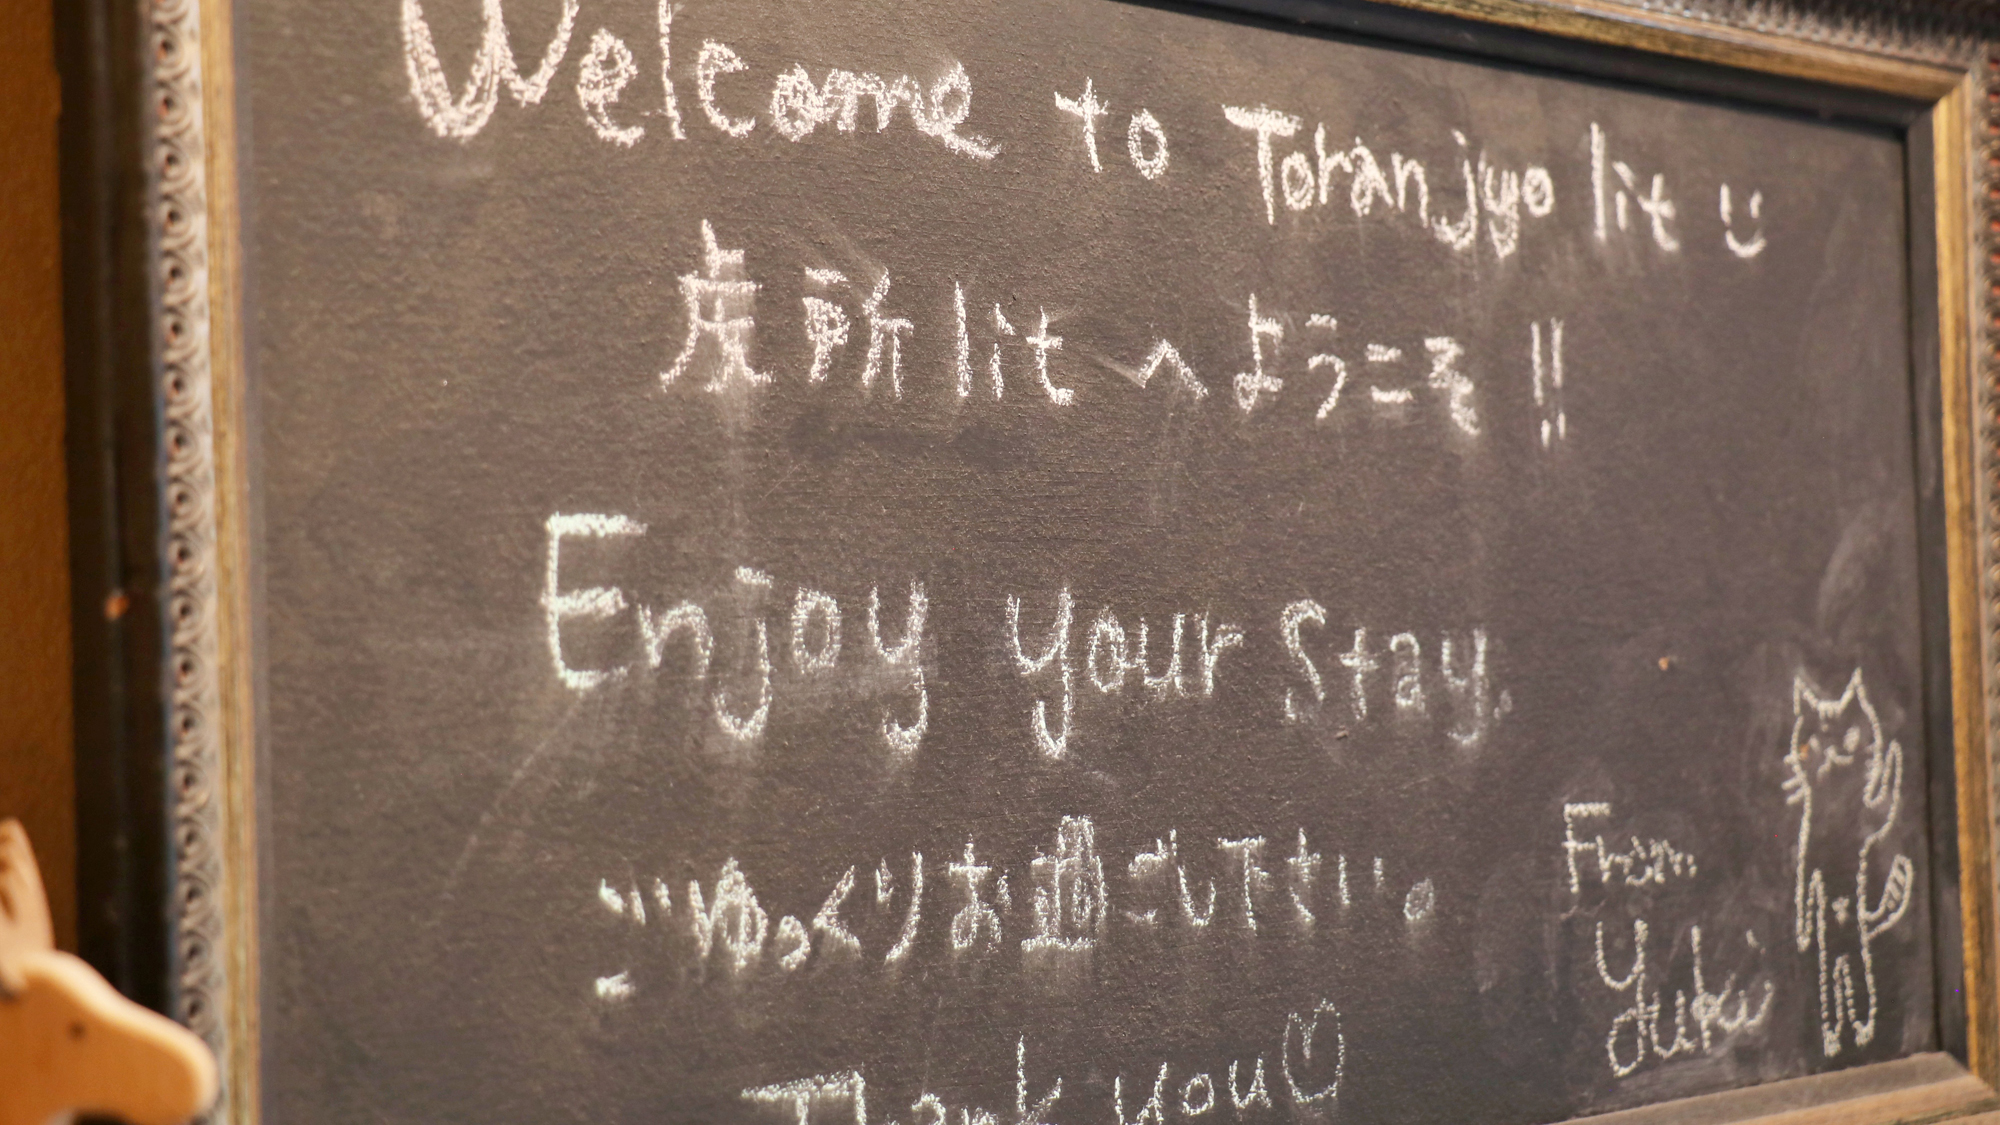 Welcome to Toranjyo lit
虎所 lit へようこそ!!
Enjoy your stay.
ごゆっくりお過ごし下さい。
Thank you♡
From
Yuki